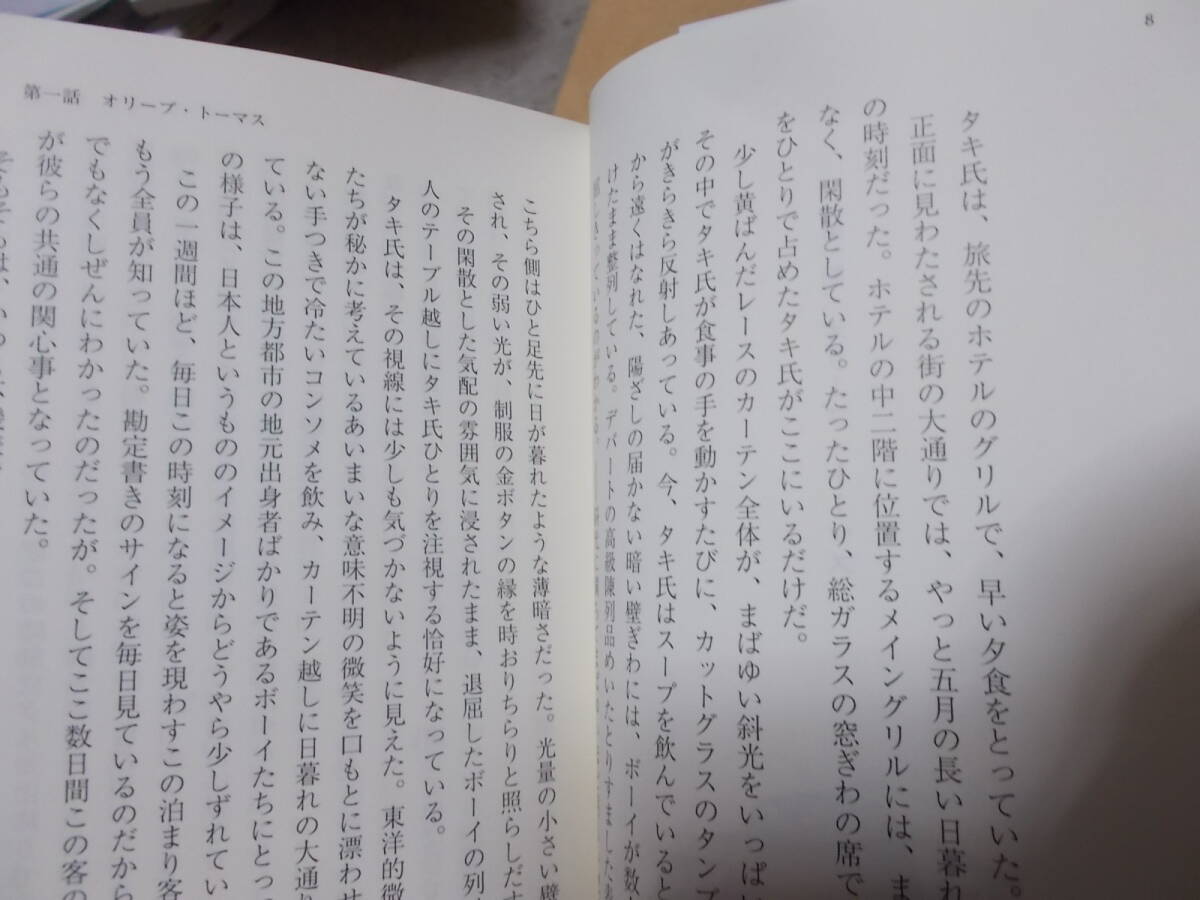 8
タキ氏は、旅先のホテルのグリルで、早い夕食をとっていた。
正面に見わたされる街の大通りでは、やっと五月の長い日暮れ
の時刻だった。ホテルの中二階に位置するメイングリルには、ま
なく、閑散としている。たったひとり、総ガラスの窓ぎわの席で
をひとりで占めたタキ氏がここにいるだけだ。
少し黄ばんだレースのカーテン全体が、まばゆい斜光をいっぱい
その中でタキ氏が食事の手を動かすたびに、カットグラスのタンブ
がきらきら反射しあっている。今、タキ氏はスープを飲んでいると
から遠くはなれた、陽ざしの届かない暗い壁ぎわには、ボーイが数
けたまま整列している。デパートの高級陳列品めいたとりすましたあ
第一話 オリーブ・トーマス
こちら側はひと足先に日が暮れたような薄暗さだった。光量の小さい壁
され、その弱い光が、制服の金ボタンの縁を時おりちらりと照らしだす
その閑散とした気配の雰囲気に浸されたまま、退屈したボーイの列
人のテーブル越しにタキ氏ひとりを注視する恰好になっている。
タキ氏は、その視線には少しも気づかないように見えた。東洋的微
たちが秘かに考えているあいまいな意味不明の微笑を口もとに漂わせ
ない手つきで冷たいコンソメを飲み、カーテン越しに日暮れの大通り
ている。この地方都市の地元出身者ばかりであるボーイたちにとっ
の様子は、日本人というもののイメージからどうやら少しずれてい
この一週間ほど、毎日この時刻になると姿を現わすこの泊まり客
もう全員が知っていた。勘定書きのサインを毎日見ているのだから
でもなくしぜんにわかったのだったが。そしてここ数日間この客の
が彼らの共通の関心事となっていた。